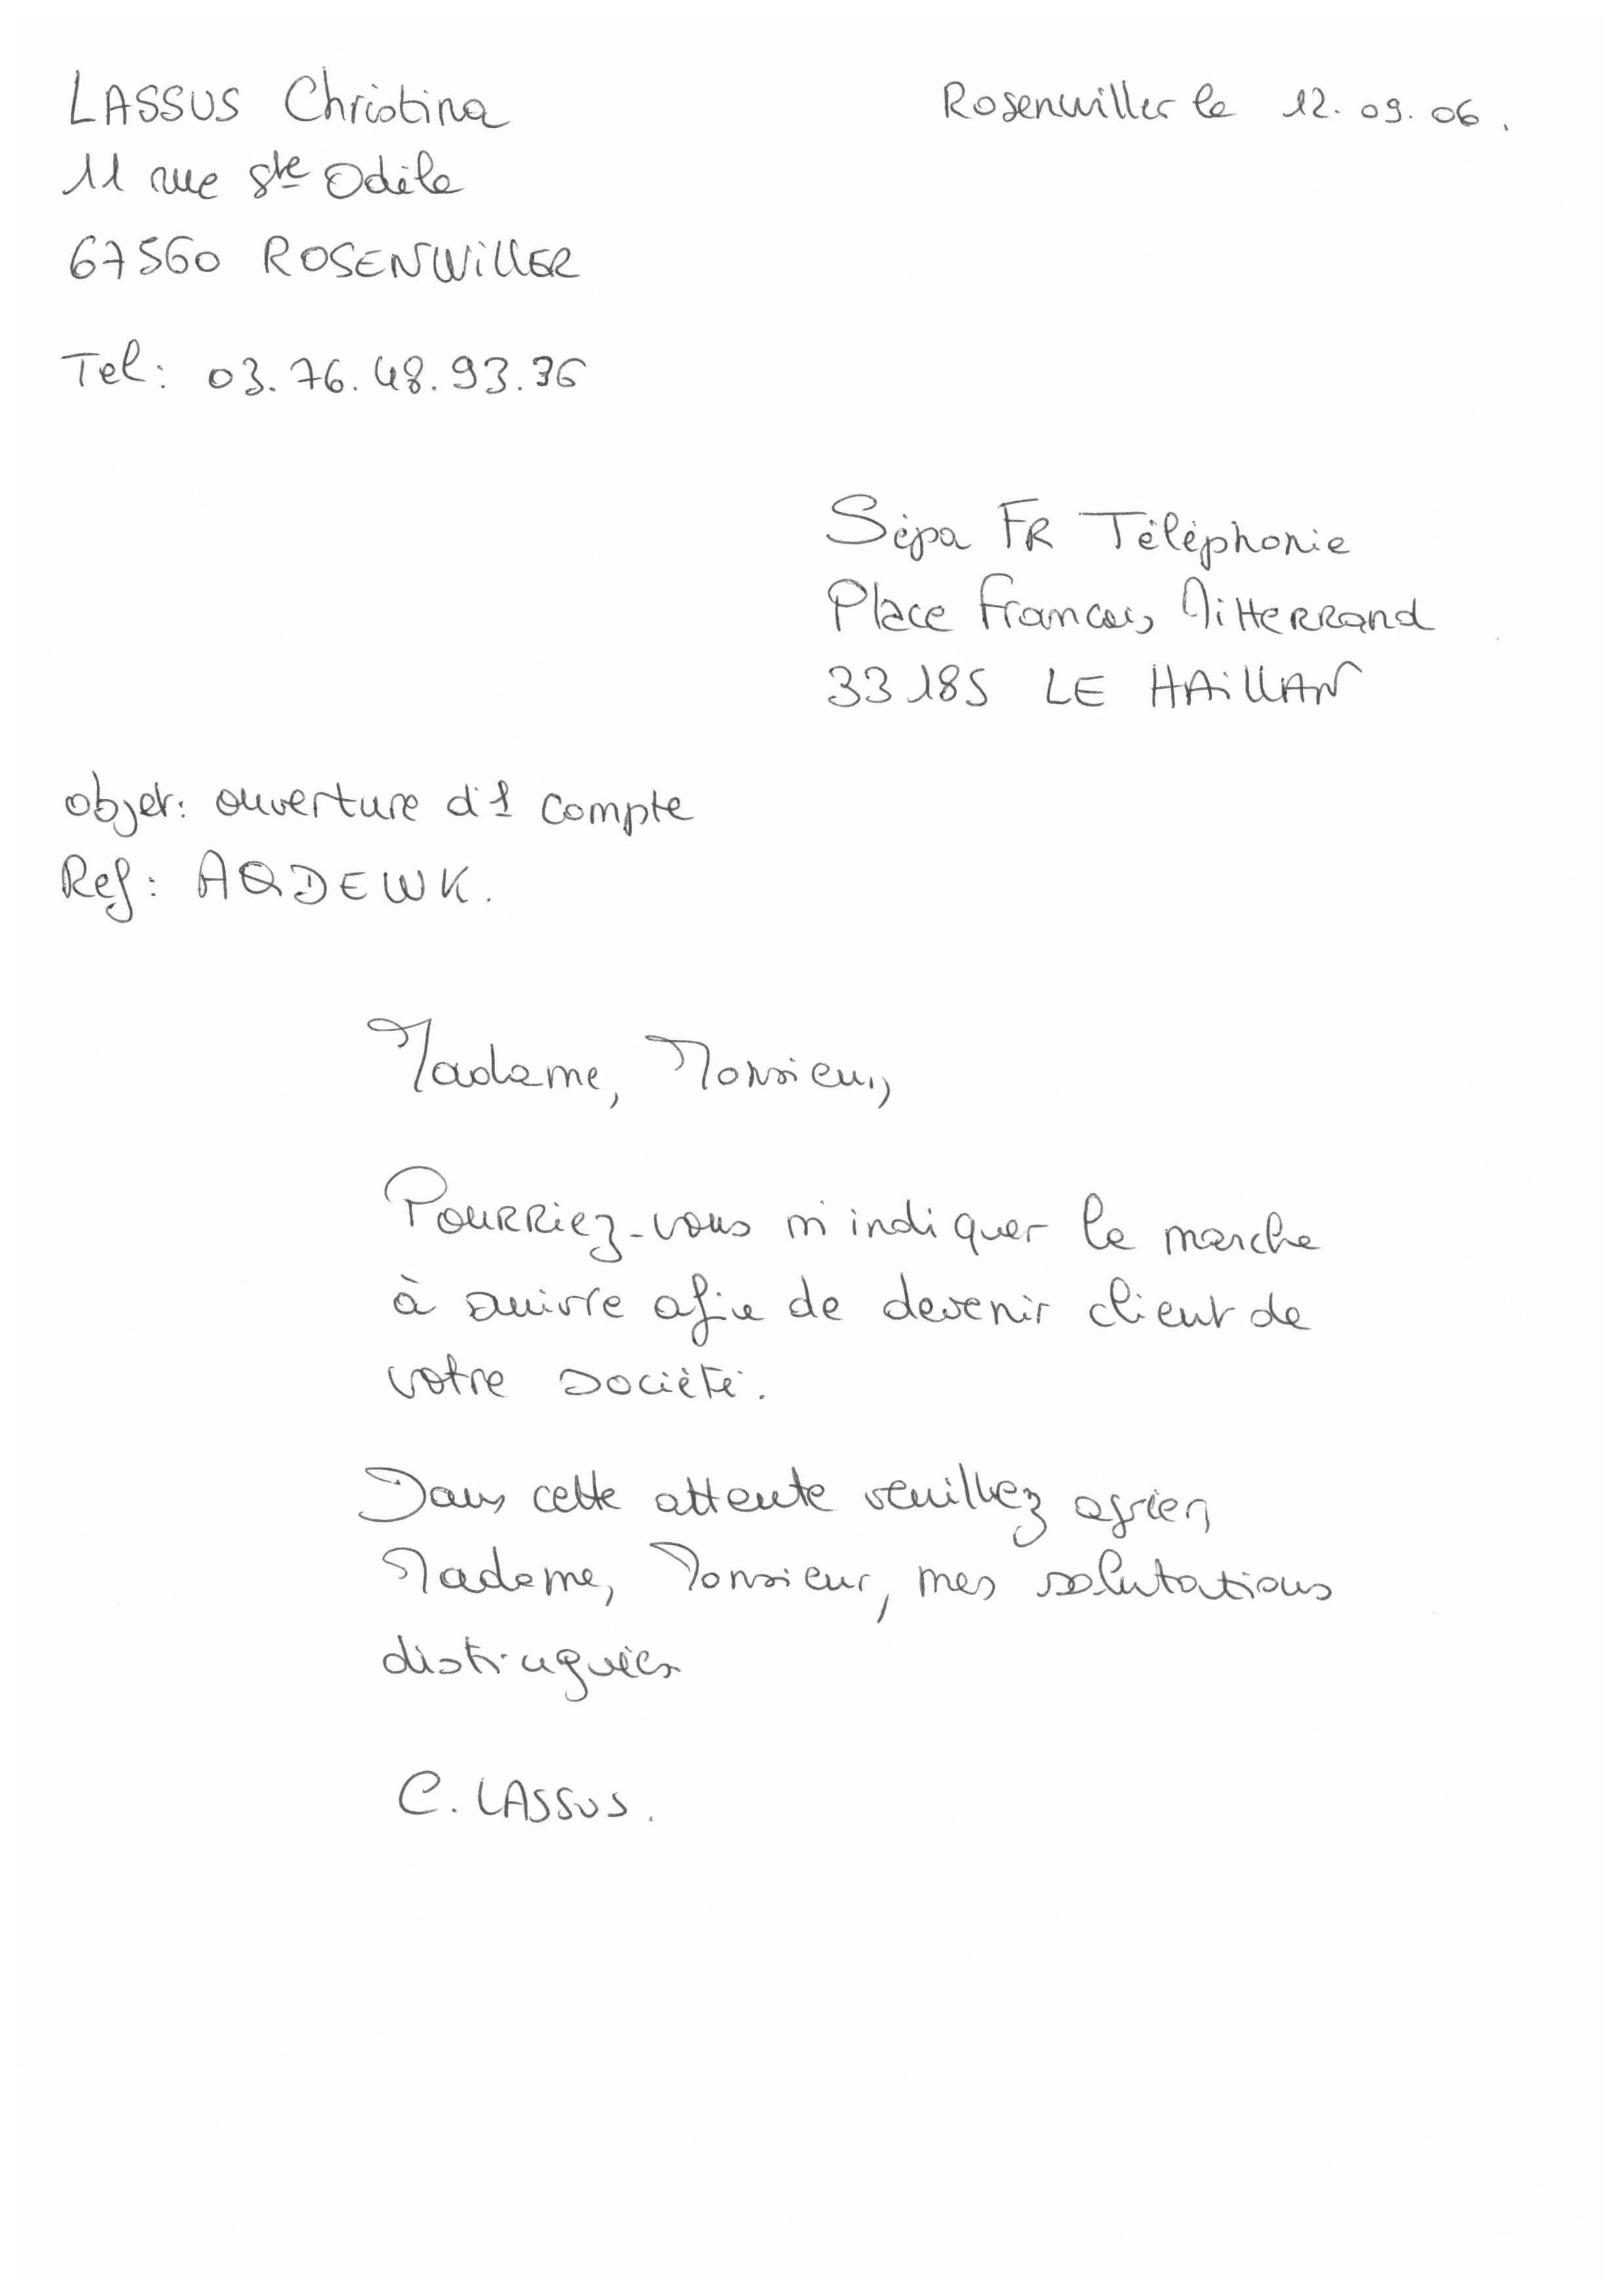 LASSUS Christina
Rosenwiller le 12.09.06.
11 rue Ste Odile
67560 ROSENWiLLER
Tel: 03.76.48.93.36
Sépa FR Téléphonie
Place Francois Mitterrand
33185 LE HAiLLAN
objet: ouverture d'1 compte
Ref: AQDEWK.
Madame, Monsieur,
Pourriez-vous m'indiquer la marche
à suivre afin de devenir client de
votre société.
Dans cette attente veuillez agréer,
Madame, Monsieur, mes salutations
distinguées
C. LASSUS.